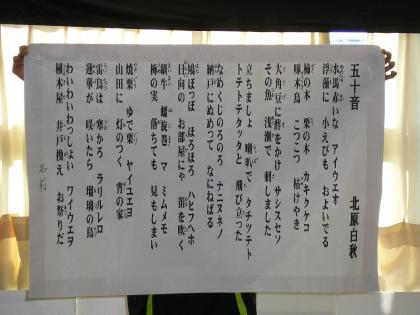 五十音　北原白秋
水馬赤いな　アイウエオ
浮藻に　小えびも　およいでる
柿の木　栗の木　カキクケコ
啄木鳥　こつこつ　枯けやき
大角豆に酢をかけ　サシスセソ
その魚　浅瀬で　刺しました
立ちましょ　喇叭で　タチツテト
トテトテタッタと　飛び立った
なめくじのろのろ　ナニヌネノ
納戸にぬめって　なにねばる
鳩ぽっぽ　ほろほろ　ハヒフヘホ
日向の　お部屋にゃ　笛を吹く
蝸牛　螺旋巻　マミムメモ
梅の実　落ちても　見もしまい
焼栗　ゆで栗　ヤイユエヨ
山田に　灯のつく　宵の家
雷鳥は　寒かろ　ラリルレロ
蓮華が　咲いたら　瑠璃の鳥
わいわいわっしょい　ワイウエヲ
植木屋　井戸換え　お祭りだ
名前